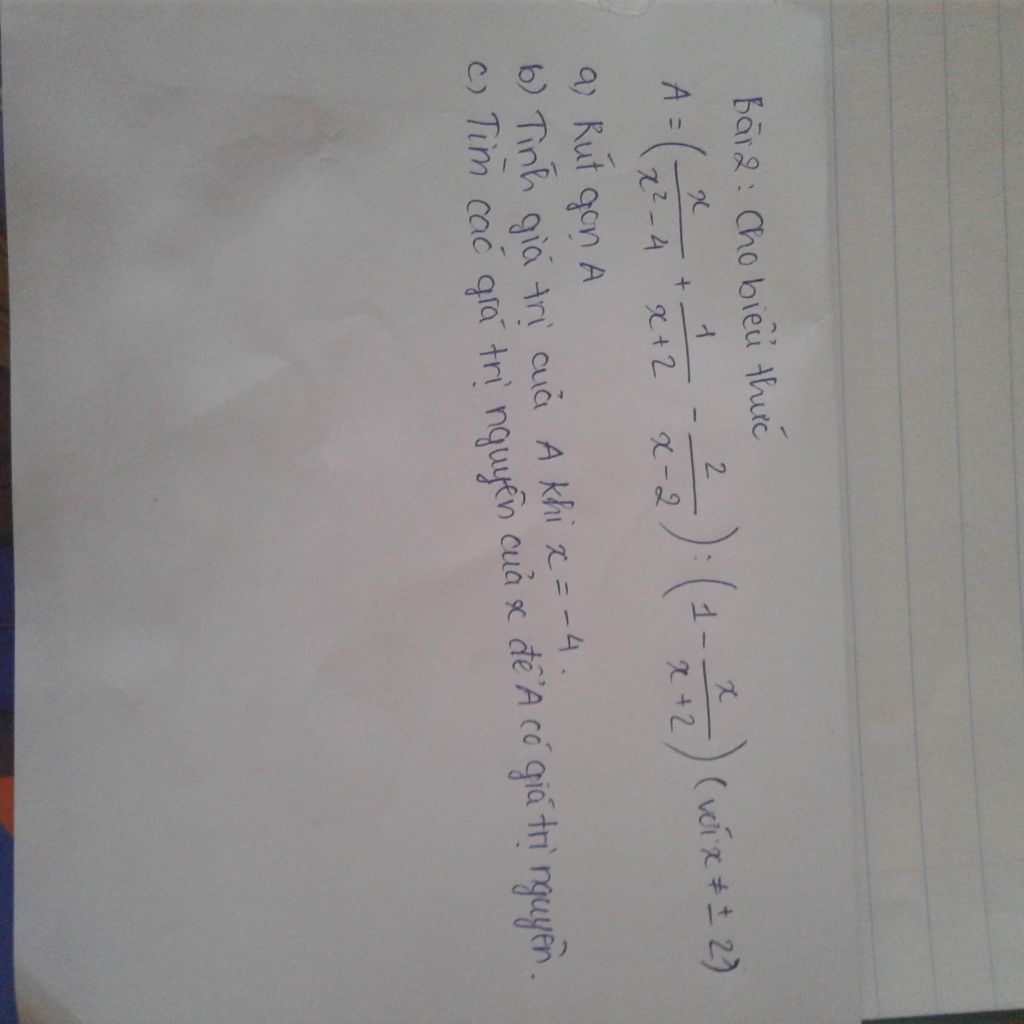 Bài 2: Cho biểu thức
A = (x/(x² - 4) + 1/(x+2) - 2/(x-2)) : (1 - x/(x+2)) (với x ≠ ± 2)
a) Rút gọn A
b) Tính giá trị của A khi x = -4.
c) Tìm các giá trị nguyên của x để A có giá trị nguyên.